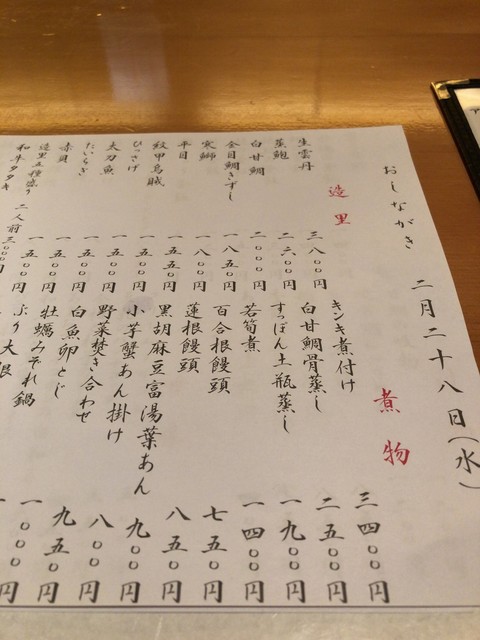 おしながき
二月二十八日(水)
造里
生雲丹 三八〇〇円
蒸鮑 二六〇〇円
白甘鯛 二〇〇〇円
金目鯛きずし 一八五〇円
寒鰤 一八〇〇円
平目 一五五〇円
紋甲烏賊 一五〇〇円
ひっさげ 一五〇〇円
太刀魚 一五〇〇円
たいらぎ 一五〇〇円
赤貝 一五〇〇円
造里五種盛り 二人前 三〇〇〇円
和牛タタキ
煮物
キンキ煮付け 三四〇〇円
白甘鯛骨蒸し 二五〇〇円
すっぽん土瓶蒸し 一九〇〇円
若筍煮 一四〇〇円
百合根饅頭 七五〇円
蓮根饅頭 八五〇円
黒胡麻豆富湯葉あん 九〇〇円
小芋蟹あん掛け 八〇〇円
野菜焚き合わせ 九五〇円
白魚卵とじ 一〇〇〇円
牡蠣みぞれ鍋
ぶり大根